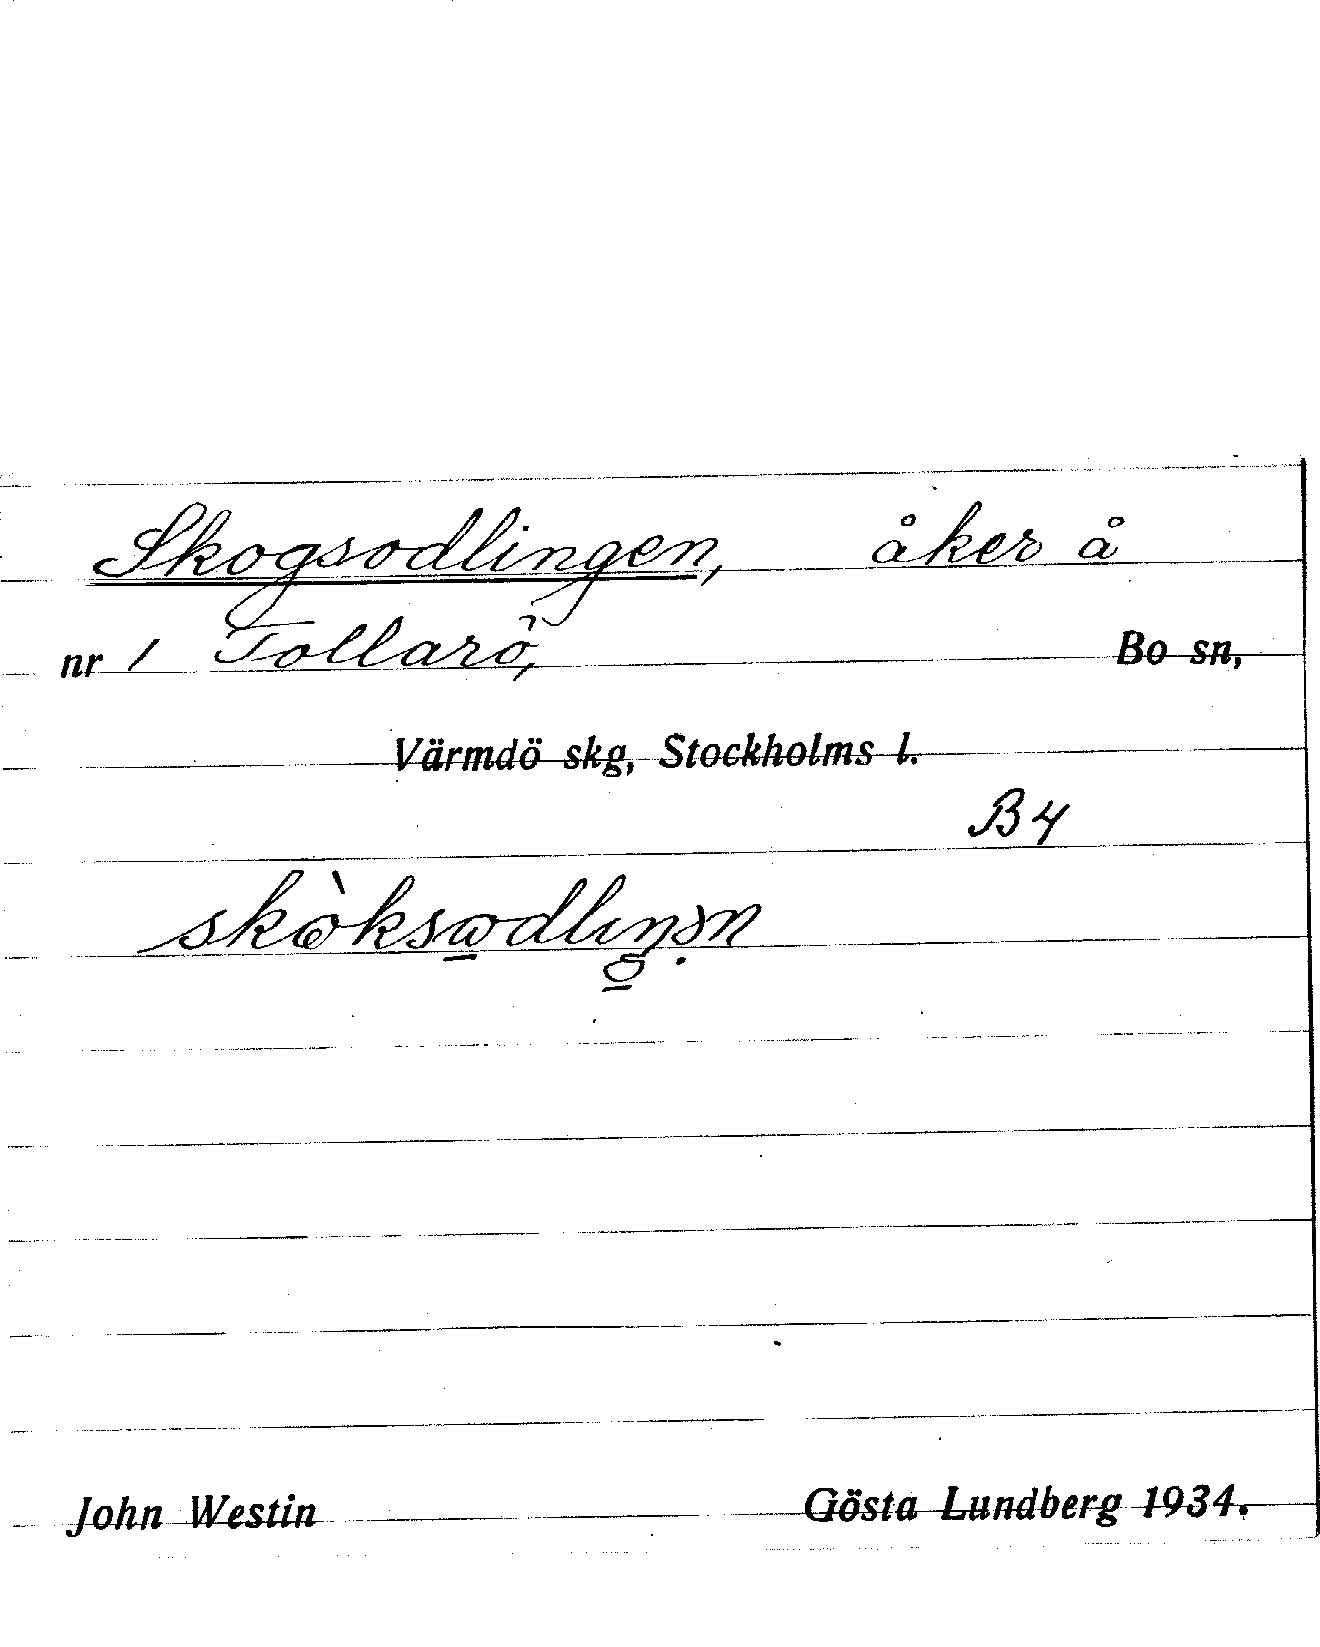 Skogsodlingen, åker å
nr 1 Tollarö, Bo sn,
Värmdö skg, Stockholms l.
B4
skòksodlıŋən
John Westin Gösta Lundberg 1934.